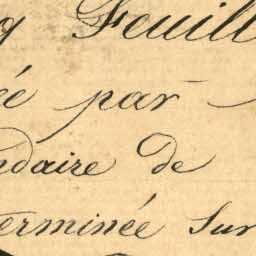 Feuill
ée par
ndaire de
erminée sur